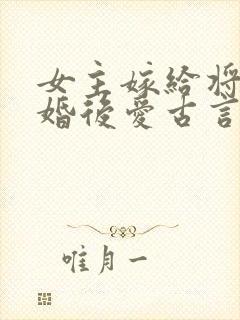 女主嫁給將
婚後愛古言
唯月一